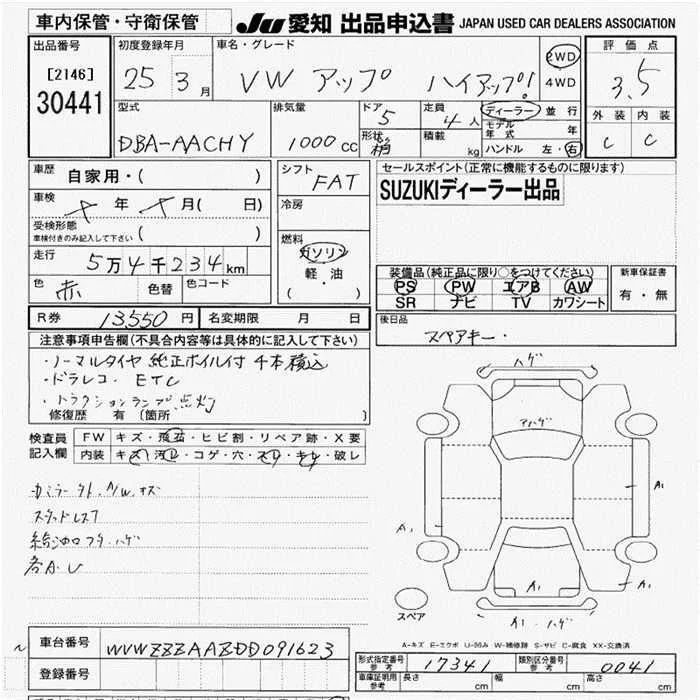 車内保管・守衛保管 JU 愛知 出品申込書 JAPAN USED CAR DEALERS ASSOCIATION
出品番号 初度登録年月 車名・グレード 評価点
[2146] 25 3月 VW アップ ハイアップ! 2WD 3.5
30441 4WD
型式 排気量 ドア 5 定員 4人 ディーラー 並行 外装 内装
DBA-AACHY 1000cc 形状 箱 積載 kg モデル年式 年 C C
ハンドル 左・右
車歴 自家用・( ) シフト FAT セールスポイント(正常に機能するものに限ります)
車検 年 月( 日) 冷房 SUZUKIディーラー出品
受検形態
車検付きのみ記入して下さい ( )
燃料 ガソリン
走行 5万4千234km 軽・油
( ・ )
装備品(純正品に限り○をつけてください) 新車保証書
色 赤 色替 色コード PS PW エアB AW 有・無
SR ナビ TV カワシート
R券 13,550円 名変期限 月 日 後日品
スペアキー・
注意事項申告欄(不具合内容等は具体的に記入して下さい)
・ノーマルタイヤ 純正ホイル付 4本積込
・ドラレコ. ETC
・トラクションランプ点灯
修復歴 有〔箇所 〕
検査員記入欄 FW キズ・飛石・ヒビ割・リペア跡・X要
内装 キズ・汚レ・コゲ・穴・スレ・キレ・破レ
カミラー タト. A/W. キズ
スタッドレス7
給油口フタ.ハゲ
各A.U
ハゲ
アハゲ
A1
A1
A1
A1
A1・ハゲ
スペア
A-キズ E-エクボ U-凹み W-補修跡 S-サビ C-腐食 XX-交換済
車台番号 WVWZZZAAZDD091623
形式指定番号 参考 17341 類別区分番号 参考 0041
登録番号
車庫証明用 参考 長さ cm 幅 cm 高さ cm